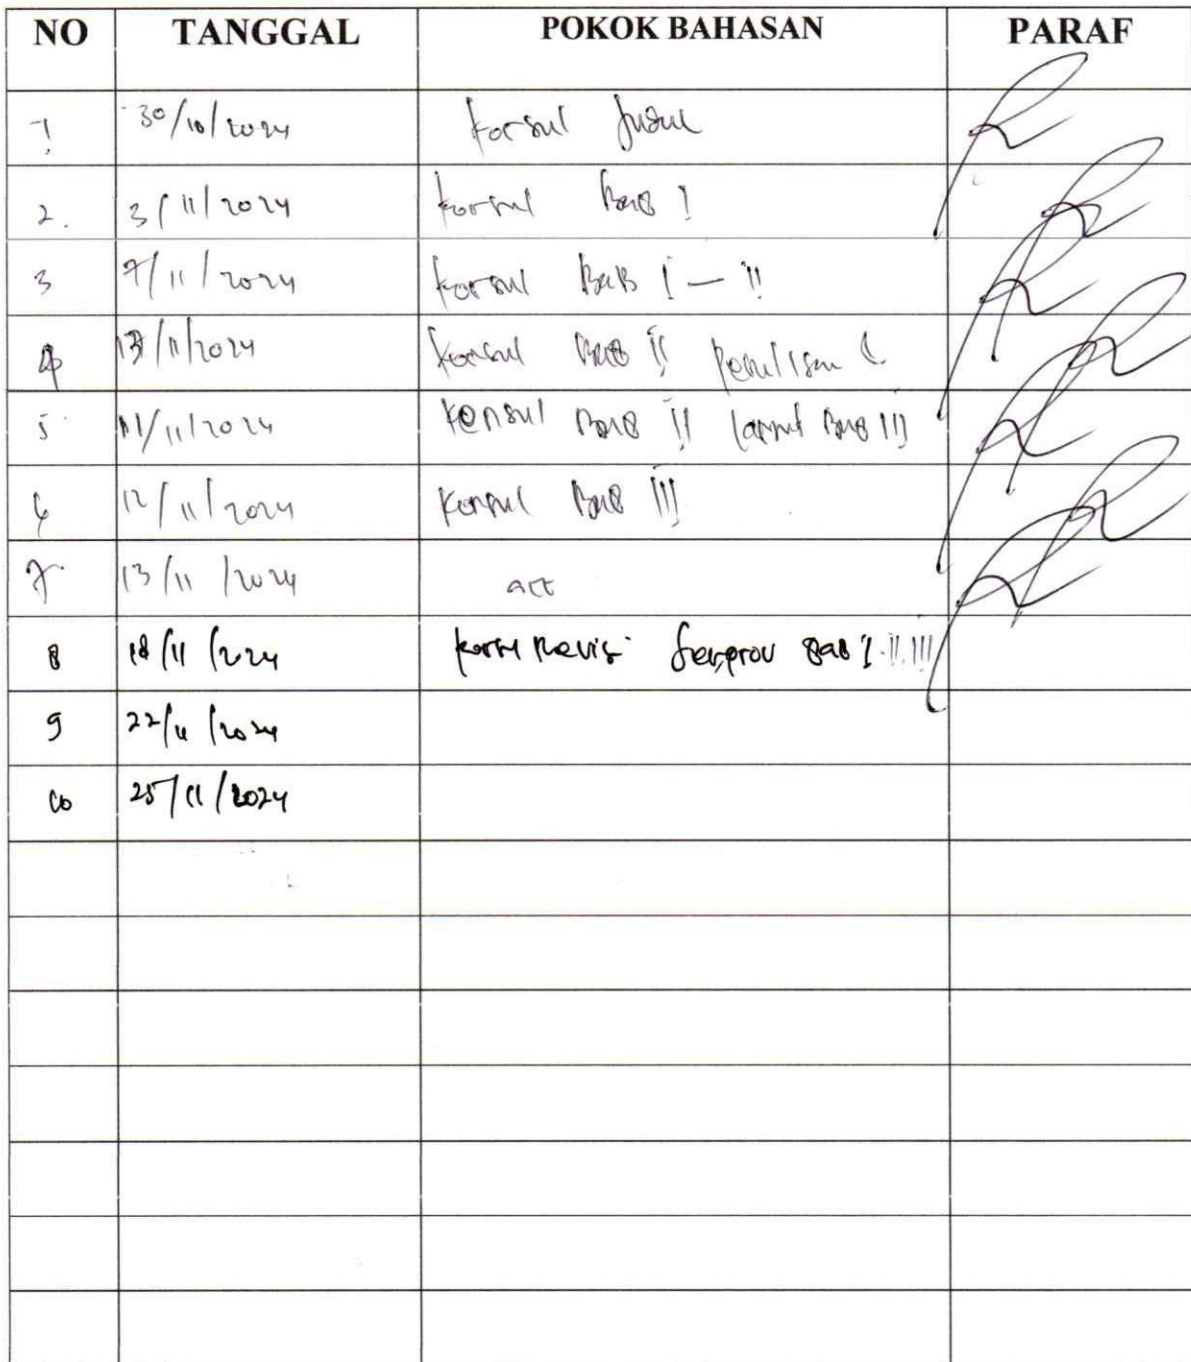 NO TANGGAL POKOK BAHASAN PARAF
1. 30/10/2024 Konsul Judul
2. 3/11/2024 Konsul Bab I
3 7/11/2024 Konsul Bab I – II
4 /11/2024 Konsul Bab II Penulisan
5. 11/11/2024 Konsul Bab II lanjut Bab III
6 12/11/2024 Konsul Bab III
7. 13/11/2024 acc
8 18/11/2024 Konsul Revisi Bab I. II. III
9 22/11/2024
10 25/11/2024